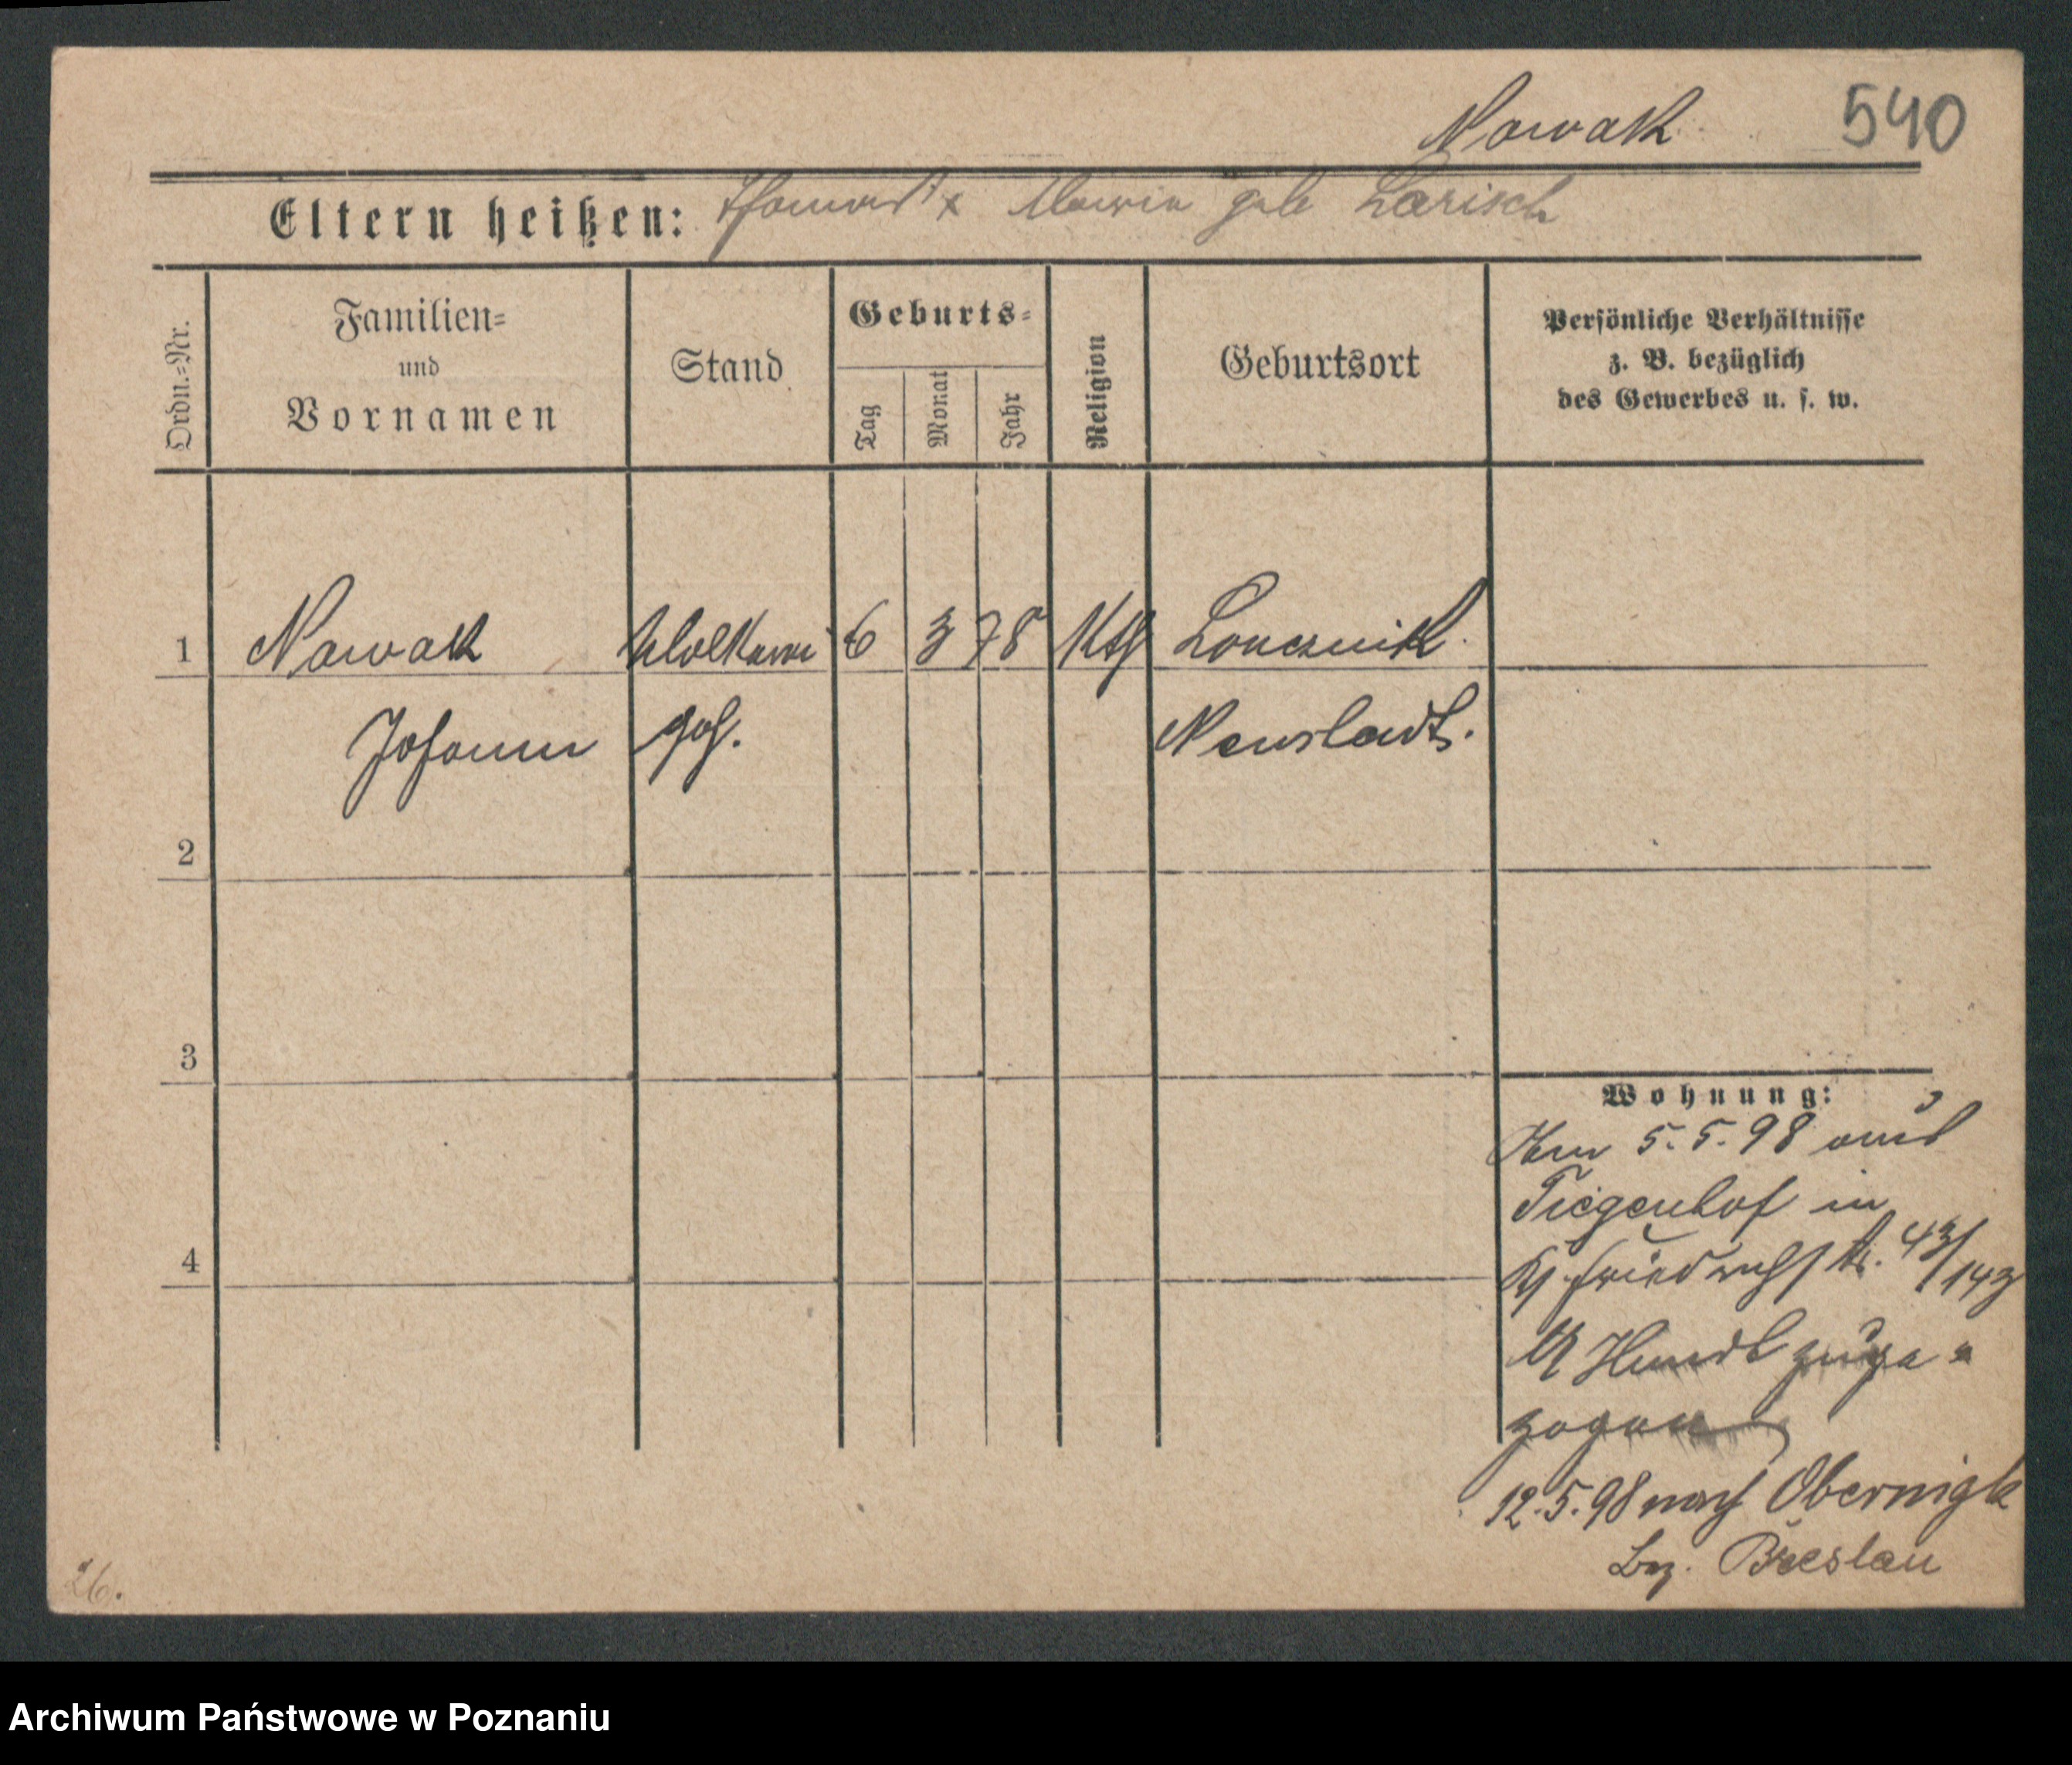 Nowak 540
Eltern heißen: Thomas x Marie geb Larisch
Ordn.=Nr.
Familien=
und
Vornamen
Stand
Geburts=
Tag
Monat
Jahr
Religion
Geburtsort
Persönliche Verhältnisse
z. B. bezüglich
des Gewerbes u. s. w.
1 Nowak 6 3 78 Kth Loncznik
Johann geh. Neustadt.
2
3
4
Wohnung:
5.5.98 aus
Tiegenhof in
Friedrichstr. 43/143
Hundt zuge=
zogen
12.5.98 nach Obernigk
Bez. Breslau
26.
Archiwum Państwowe w Poznaniu